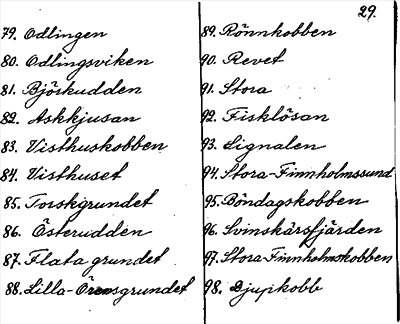 29.
79. Odlingen
80. Odlingsviken
81. Björkudden
82. Askkjusan
83. Visthuskobben
84. Visthuset
85. Torskgrundet
86. Österudden
87. Flata grundet
88. Lilla-Örensgrundet
89. Rönnkobben
90. Revet
91. Stora
92. Fisklösan
93. Lignalen
94. Stora-Finnholmssund
95. Böndagskobben
96. Svinskärsfjärden
97. Stora-Finnholmskobben
98. Djupkobb